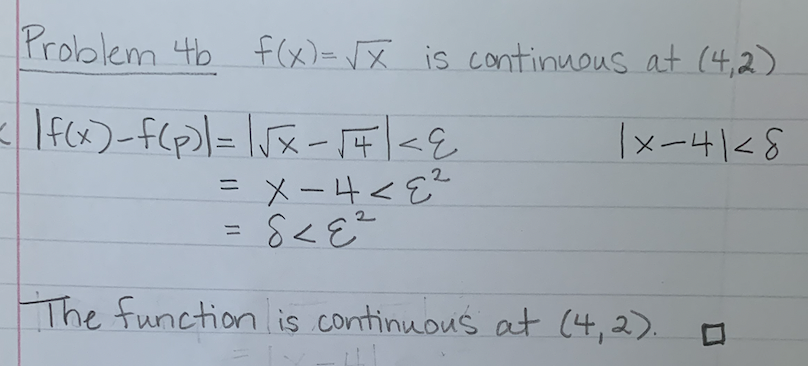 Problem 4b f(x)=√x is continuous at (4,2)
|f(x)-f(p)|=|√x-√4|<ε |x-4|<δ
= x-4<ε²
= δ<ε²
The function is continuous at (4,2). □